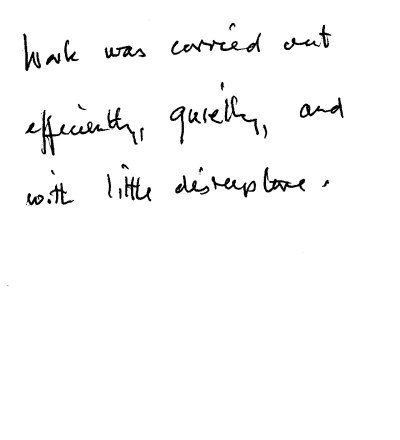 Work was carried out
efficiently, quietly, and
with little disruptions.